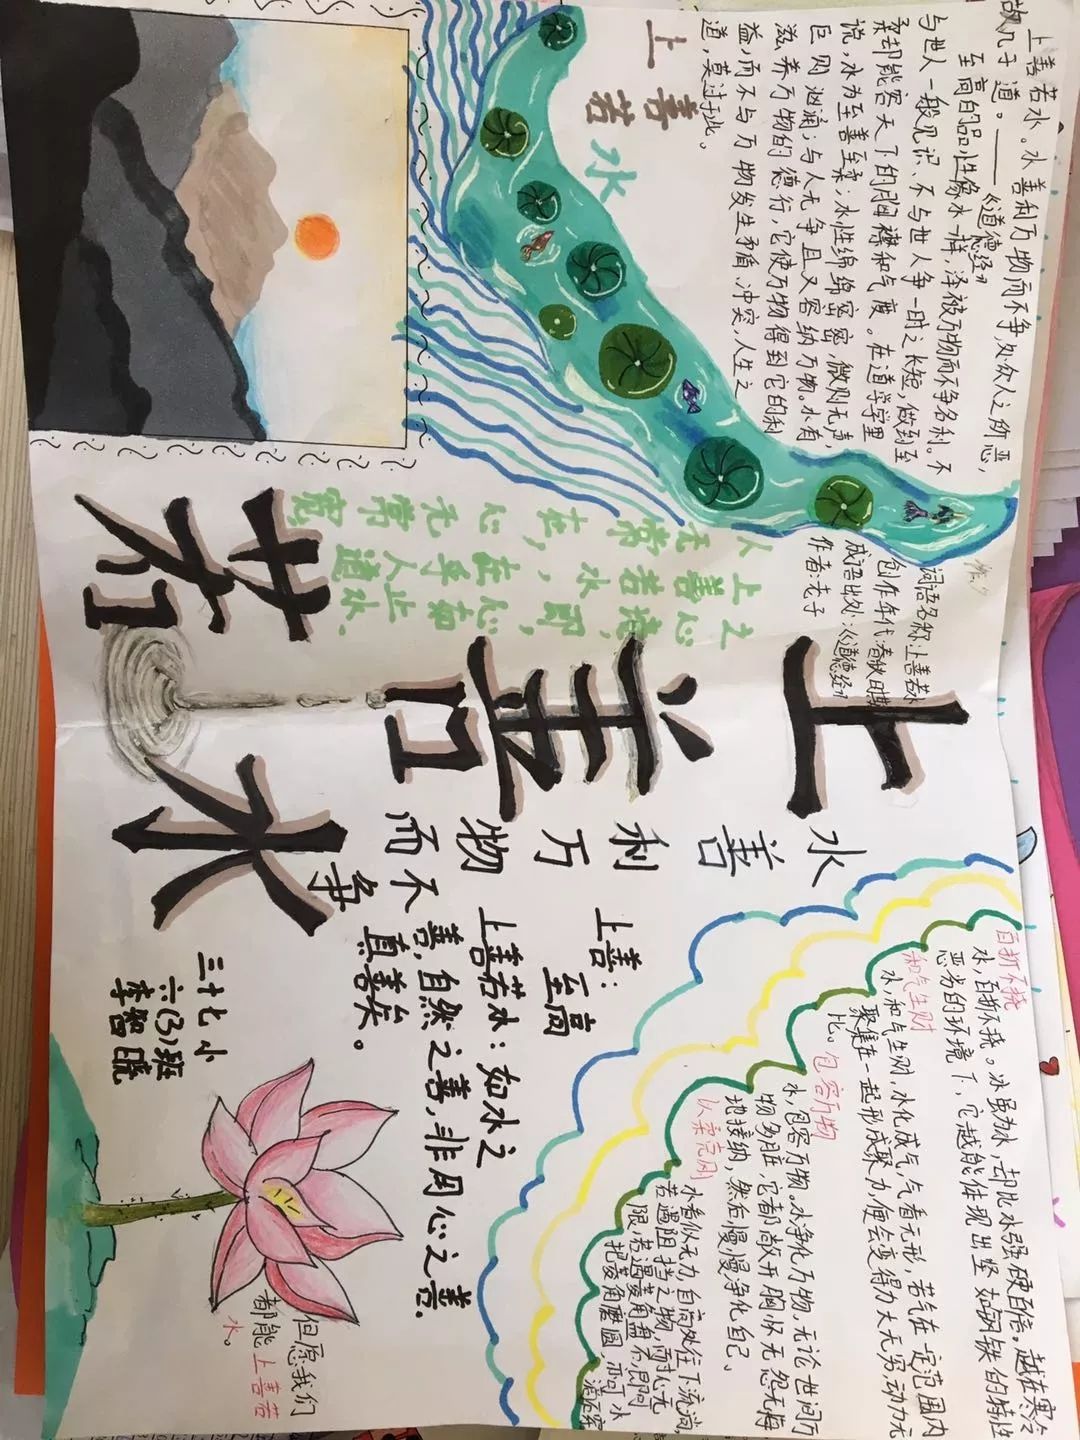 上善若水。水善利万物而不争,处众人之所恶,
故几于道。——《道德经》
至高的品性像水一样,泽被万物而不争名利。不
与世人一般见识、不与世人争一时之长短,做到至
柔却能容天下的胸襟和气度。在道学学里
说,水为至善至柔;水性绵绵密密,微则无声,
巨则汹涌;与人无争且又容纳万物。水有
滋养万物的德行,它使万物得到它的利
益,而不与万物发生矛盾、冲突,人生之
道,莫过于此。
上善若
水
词语名称:上善若水
创作年代:春秋日期
成语出处:《道德经》
作者:老子
上善若水
水善利万物而不争
上善:
至高
上善若水:如水之
善,自然之善,非用心之善.
真善矣。
百折不挠
水,百折不挠。冰虽为水,却比水强硬百倍。越在寒冷
恶劣的环境下,它越能体现出坚如钢铁的特性
和气生财
水,和气生财,水化成气,气看无形,若气在一定范围内
聚集在一起形成聚力,便会变得力大无穷动力无
比。
包容万物
水,包容万物。水净化万物,无论世间万
物多脏,它都敞开胸怀无怨无悔
地接纳,然后慢慢净化自己。
以柔克刚
水看似无力,自高处往下流淌,
若遇阻挡之物,而耐心无
限,若遇菱角
把菱角磨圆,亦可水
滴石穿
三十七小
六(3)班
但愿我们
都能上善若
水。